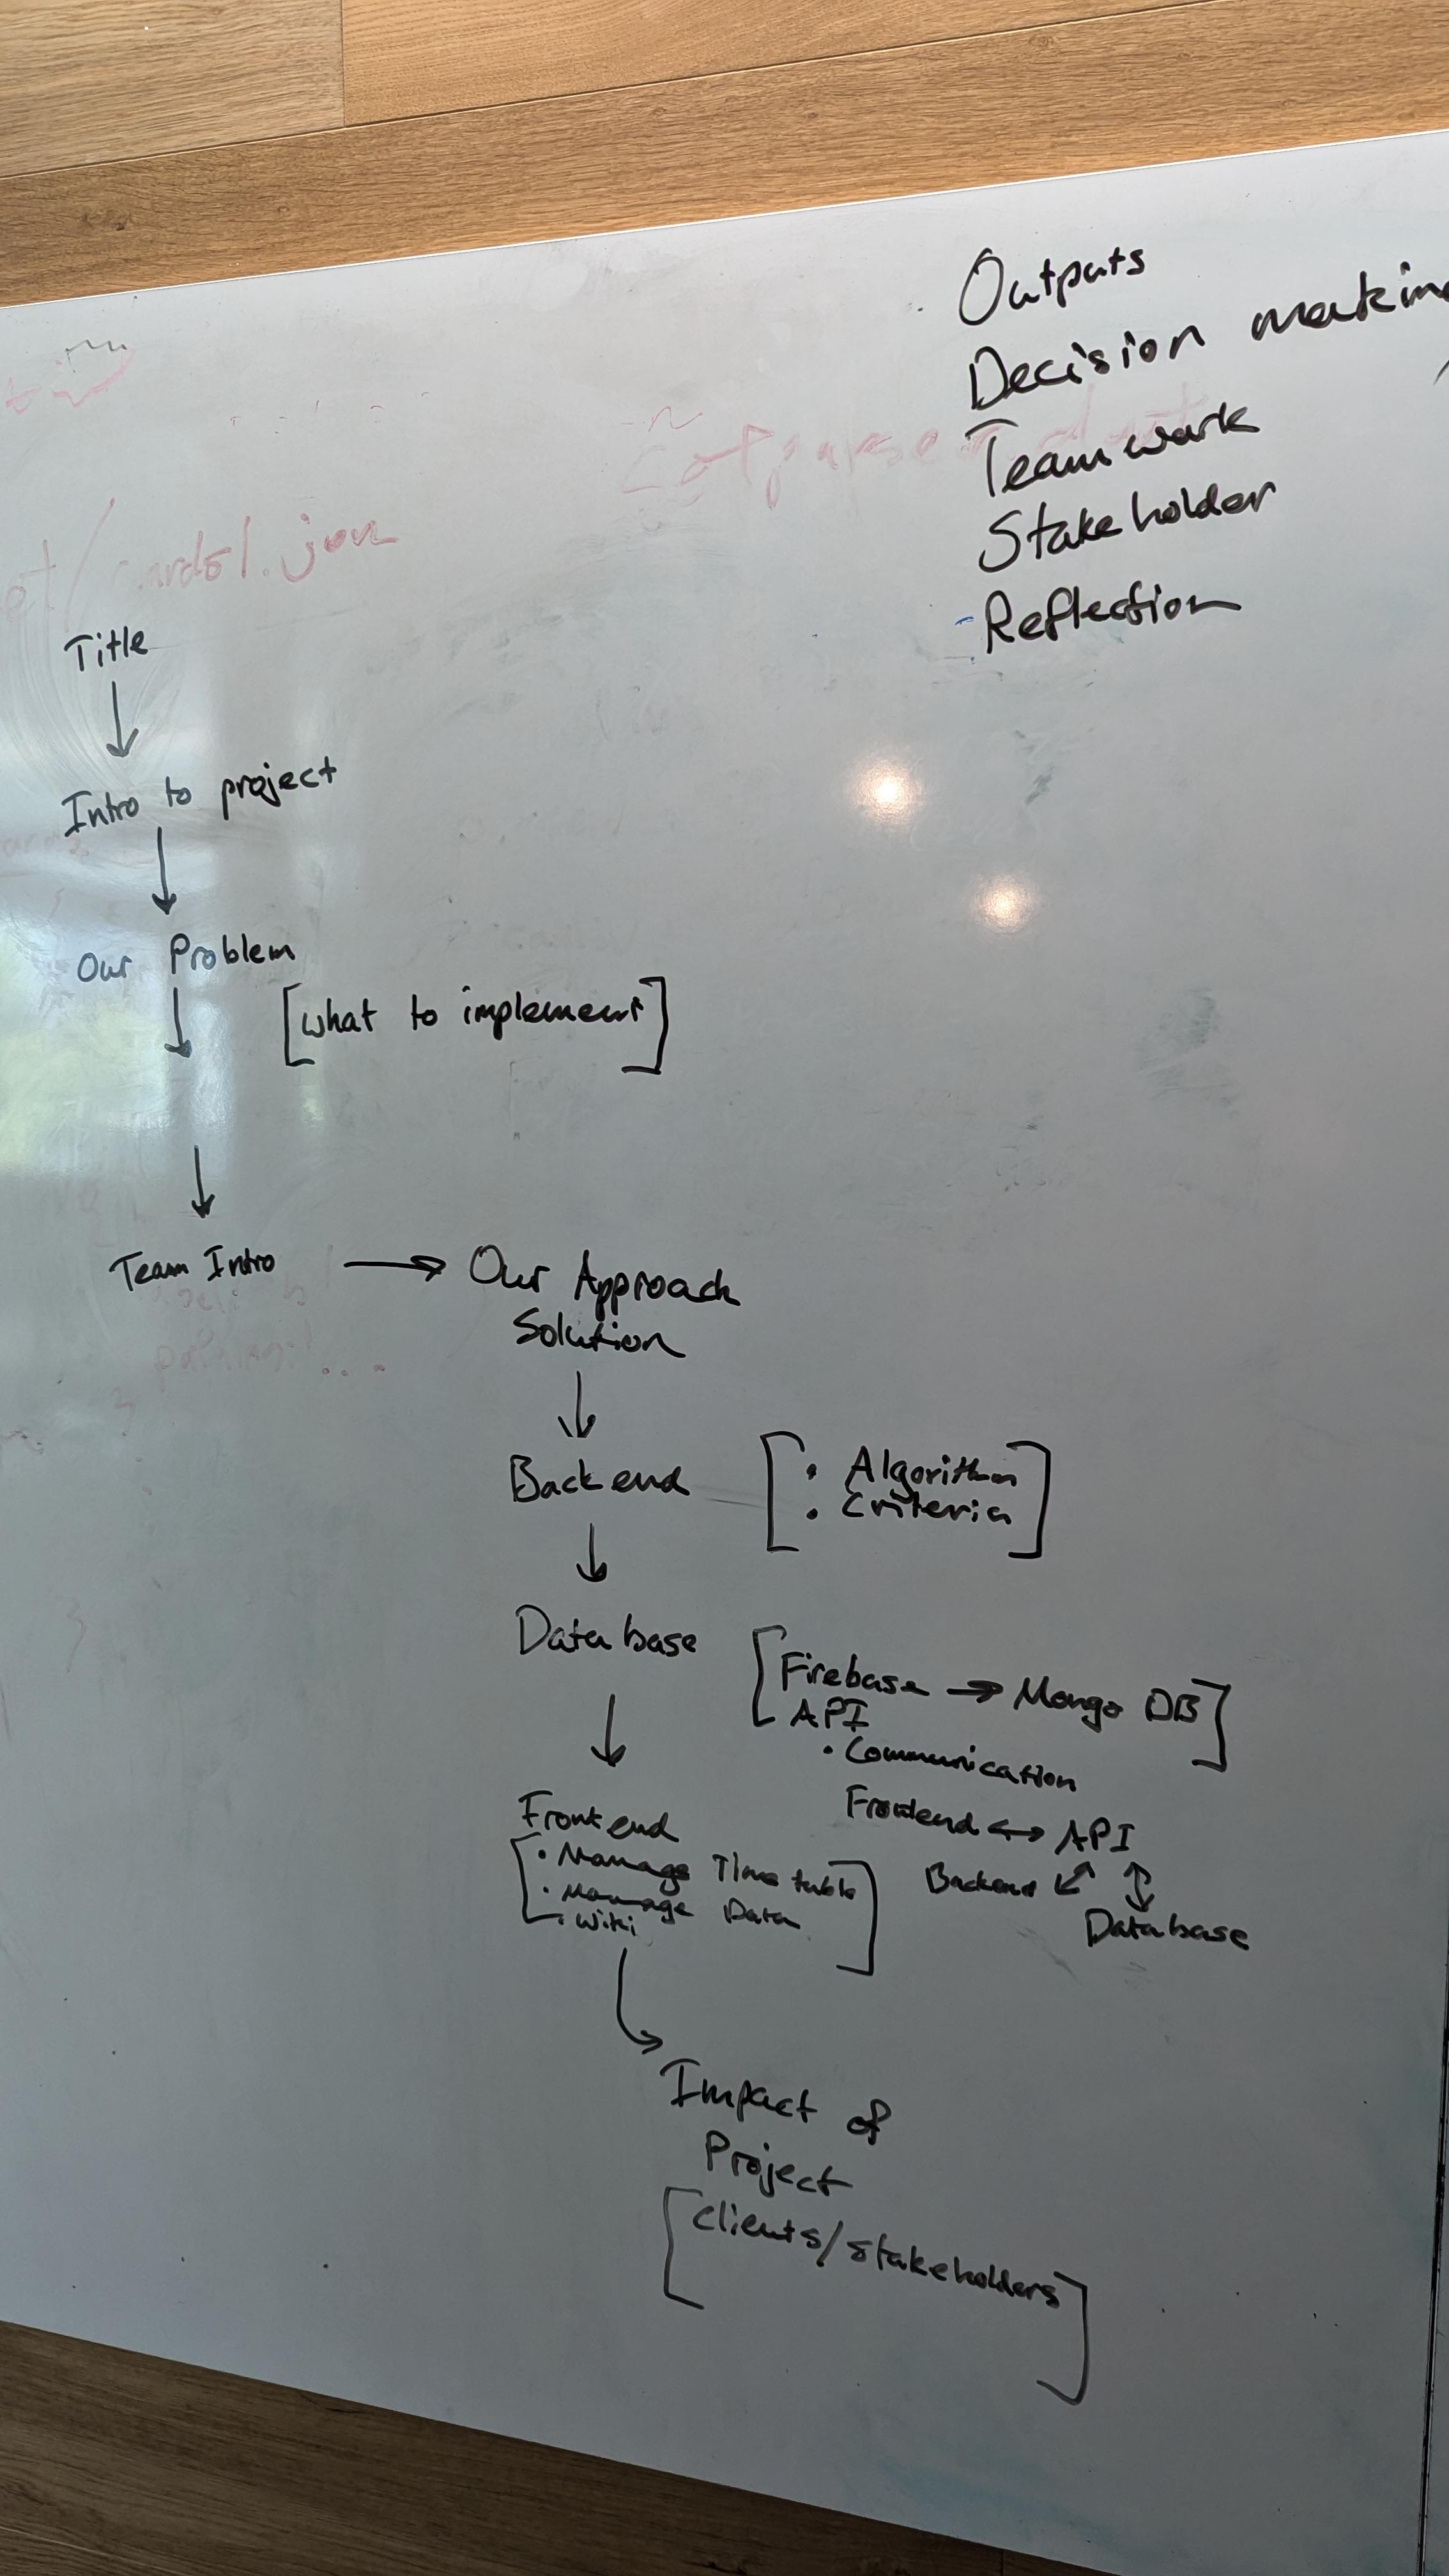 Outputs
Decision makin
Teamwork
Stakeholder
Reflection
Title
Intro to project
Our Problem
[what to implement]
Team Intro → Our Approach
Solution
Backend
[• Algorithm
• Criteria]
Database
[Firebase → Mongo DB]
API
• Communication
Frontend ↔ API
Backend
Database
Frontend
[• Manage Time table
• Manage Data
• Wiki]
Impact of
Project
[clients/stakeholders]